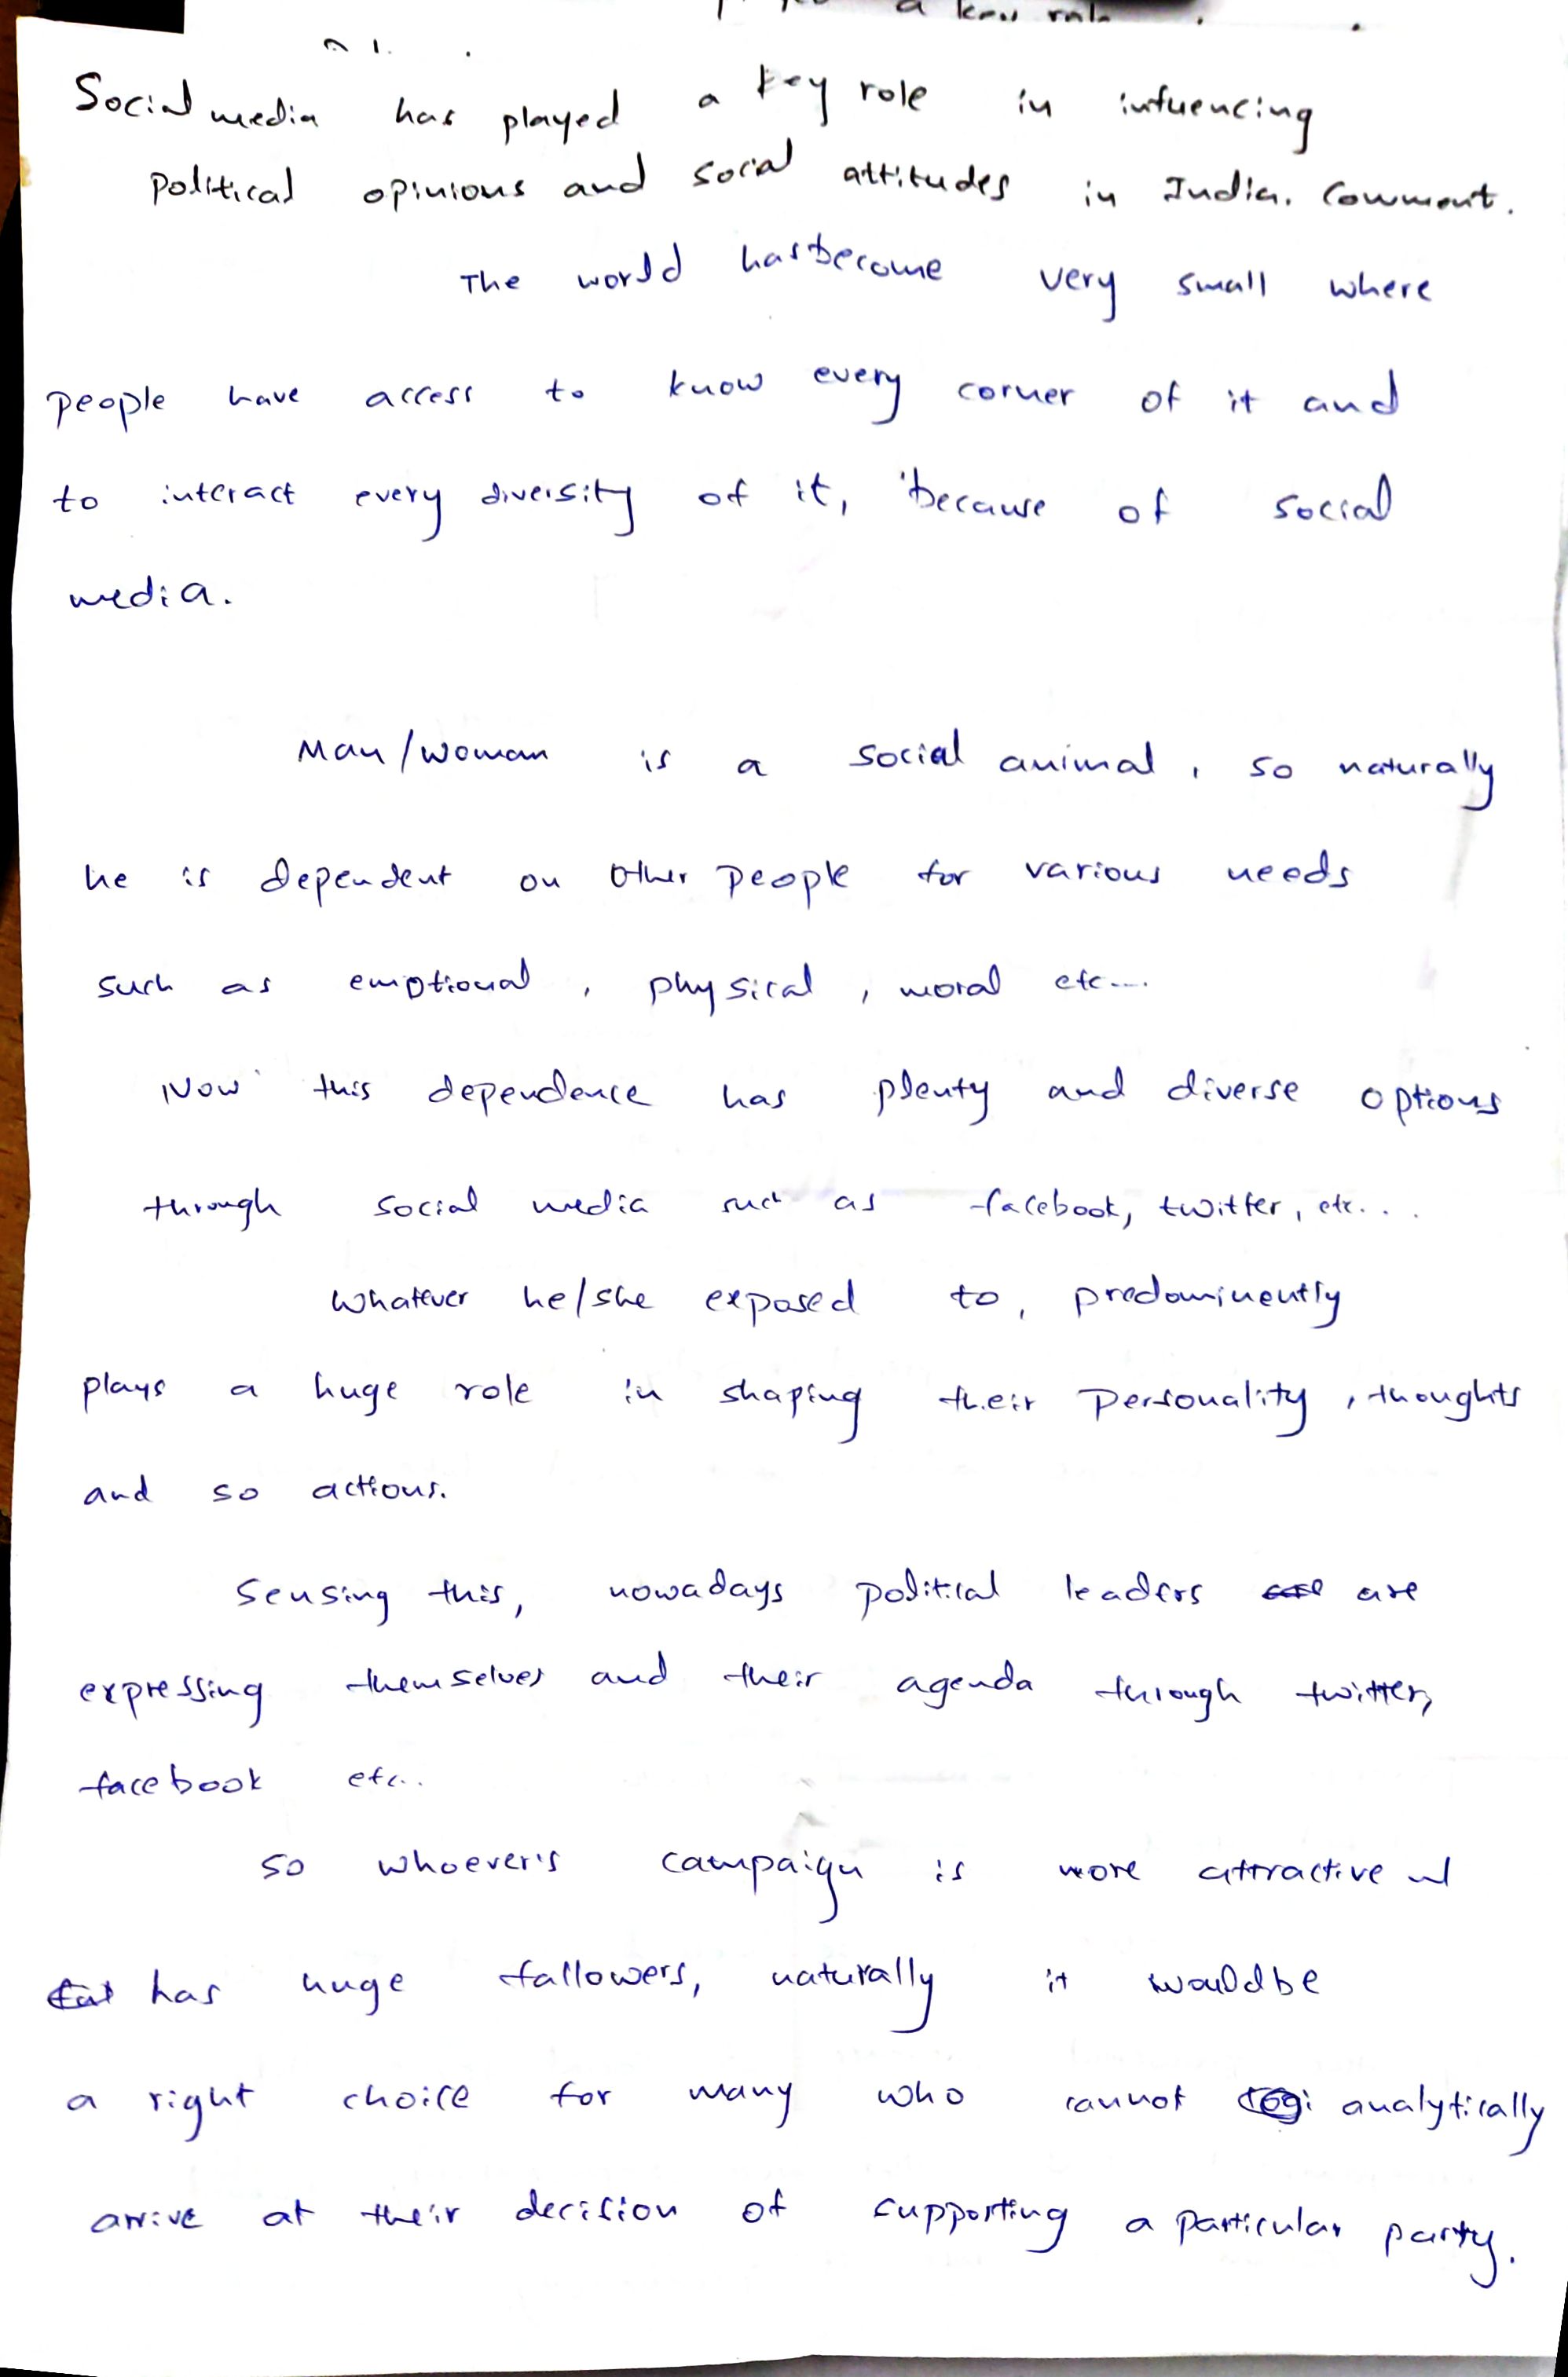 a key role
Social media has played a key role in infuencing
political opinions and social attitudes in India. Comment.
The world has become very small where
people have access to know every corner of it and
to interact every diversity of it, because of social
media.
Man/woman is a social animal, so naturally
he is dependent on other people for various needs
such as emotional, physical, moral etc....
Now this dependence has plenty and diverse options
through social media such as facebook, twitter, etc...
Whatever he/she exposed to, predominently
plays a huge role in shaping their personality, thoughts
and so actions.
Sensing this, nowadays political leaders are
expressing themselves and their agenda through twitter,
facebook etc..
so whoever's campaign is more attractive
has huge fallowers, naturally it would be
a right choice for many who cannot analytically
arrive at their decision of supporting a particular party.